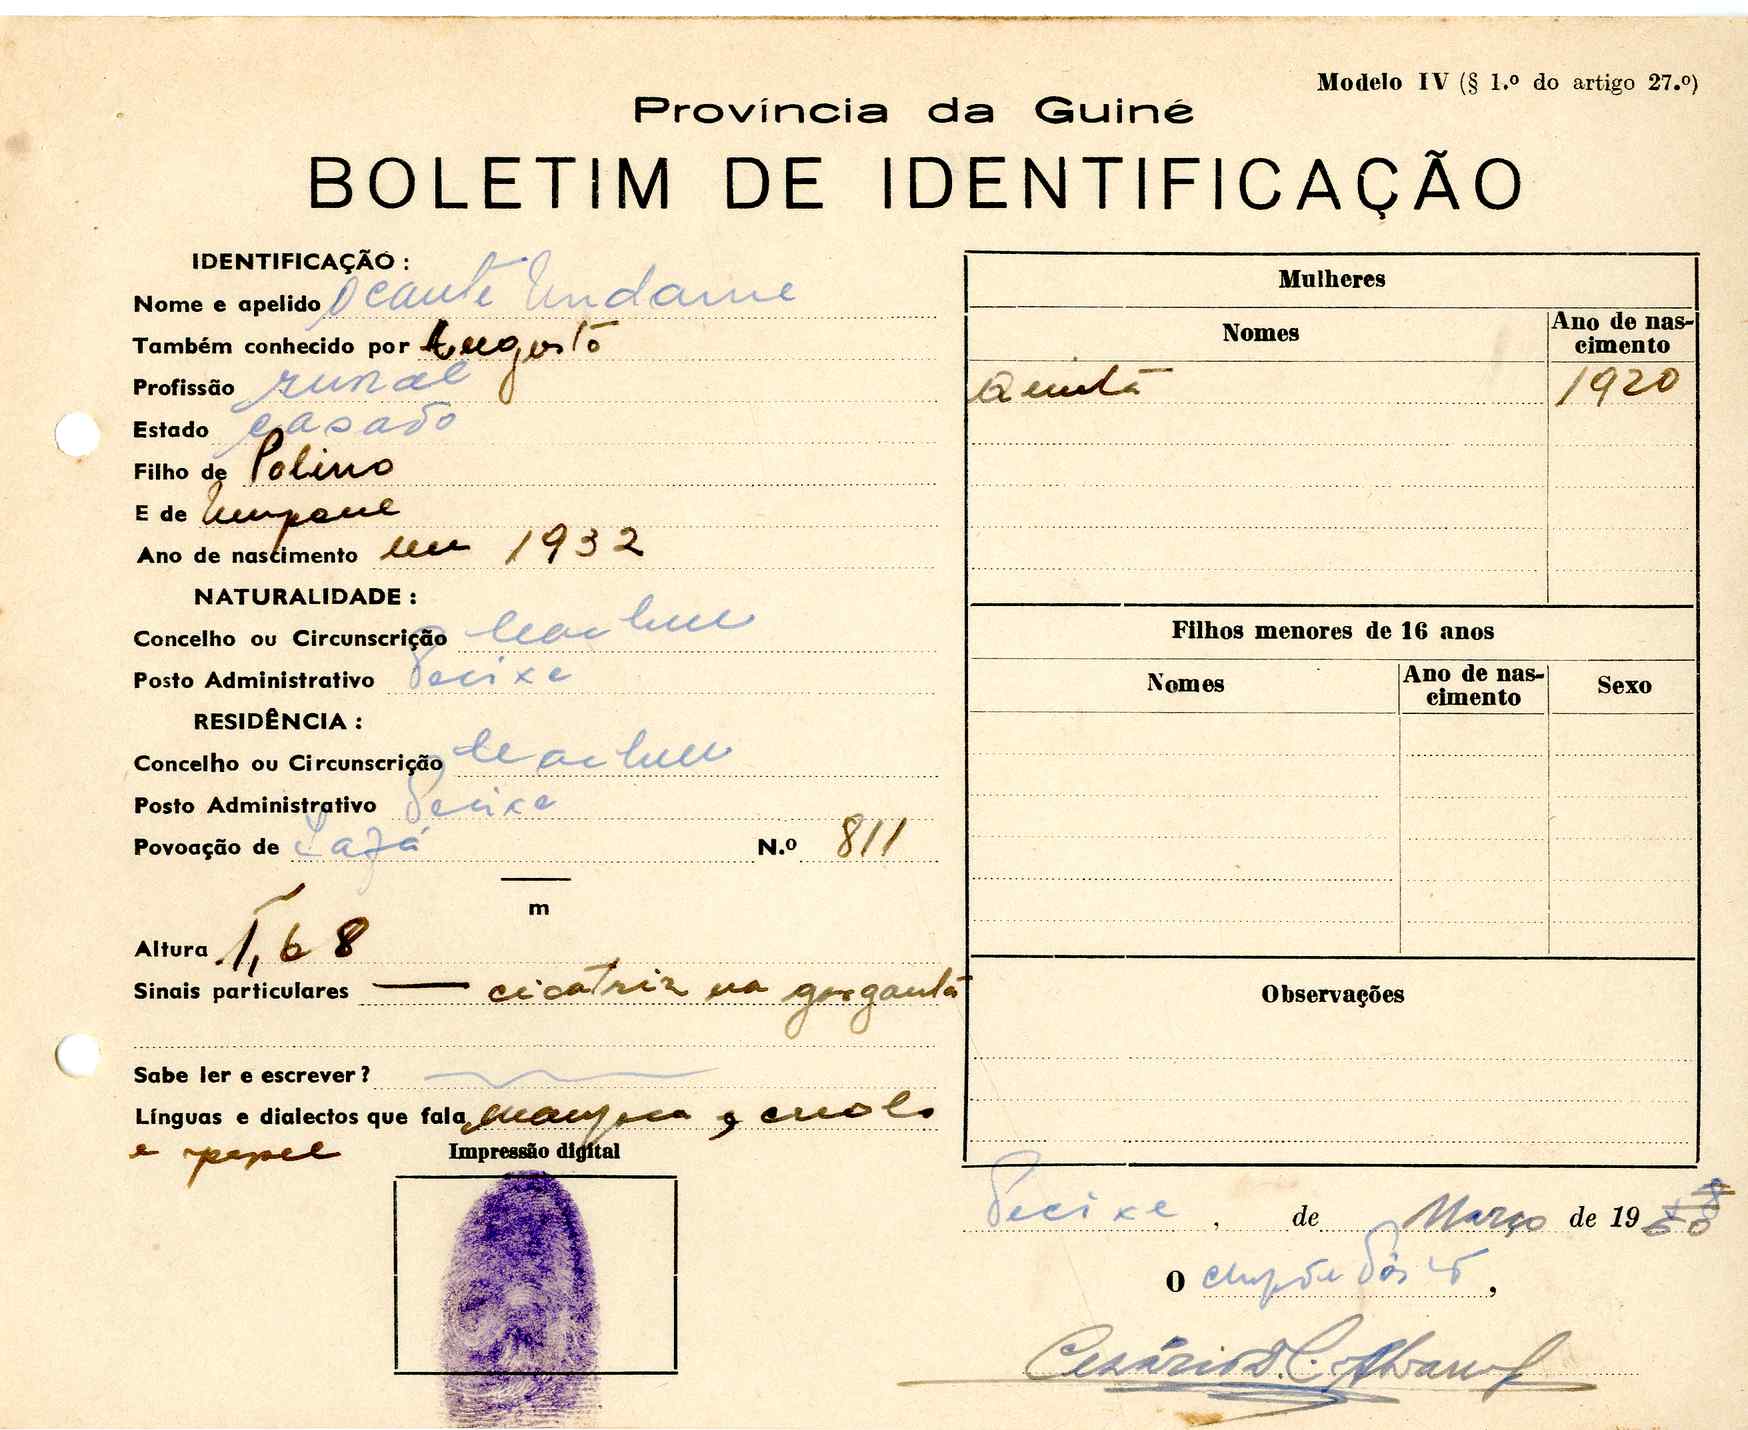 Modelo IV (§ 1.º do artigo 27.º)
Província da Guiné
BOLETIM DE IDENTIFICAÇÃO
IDENTIFICAÇÃO :
Nome e apelido Ocante Undame
Também conhecido por Augusto
Profissão rural
Estado casado
Filho de Polino
E de Umpane
Ano de nascimento em 1932
NATURALIDADE :
Concelho ou Circunscrição
Posto Administrativo Pecixe
RESIDÊNCIA :
Concelho ou Circunscrição
Posto Administrativo Pecixe
Povoação de
N.º 811
m
Altura 1,68
Sinais particulares — cicatriz na garganta
Sabe ler e escrever ?
Línguas e dialectos que fala , criolo
e papel
Impressão digital
Mulheres
Nomes
Ano de nas-
cimento
1920
Filhos menores de 16 anos
Nomes
Ano de nas-
cimento
Sexo
Observações
Pecixe , de Março de 19
O ,